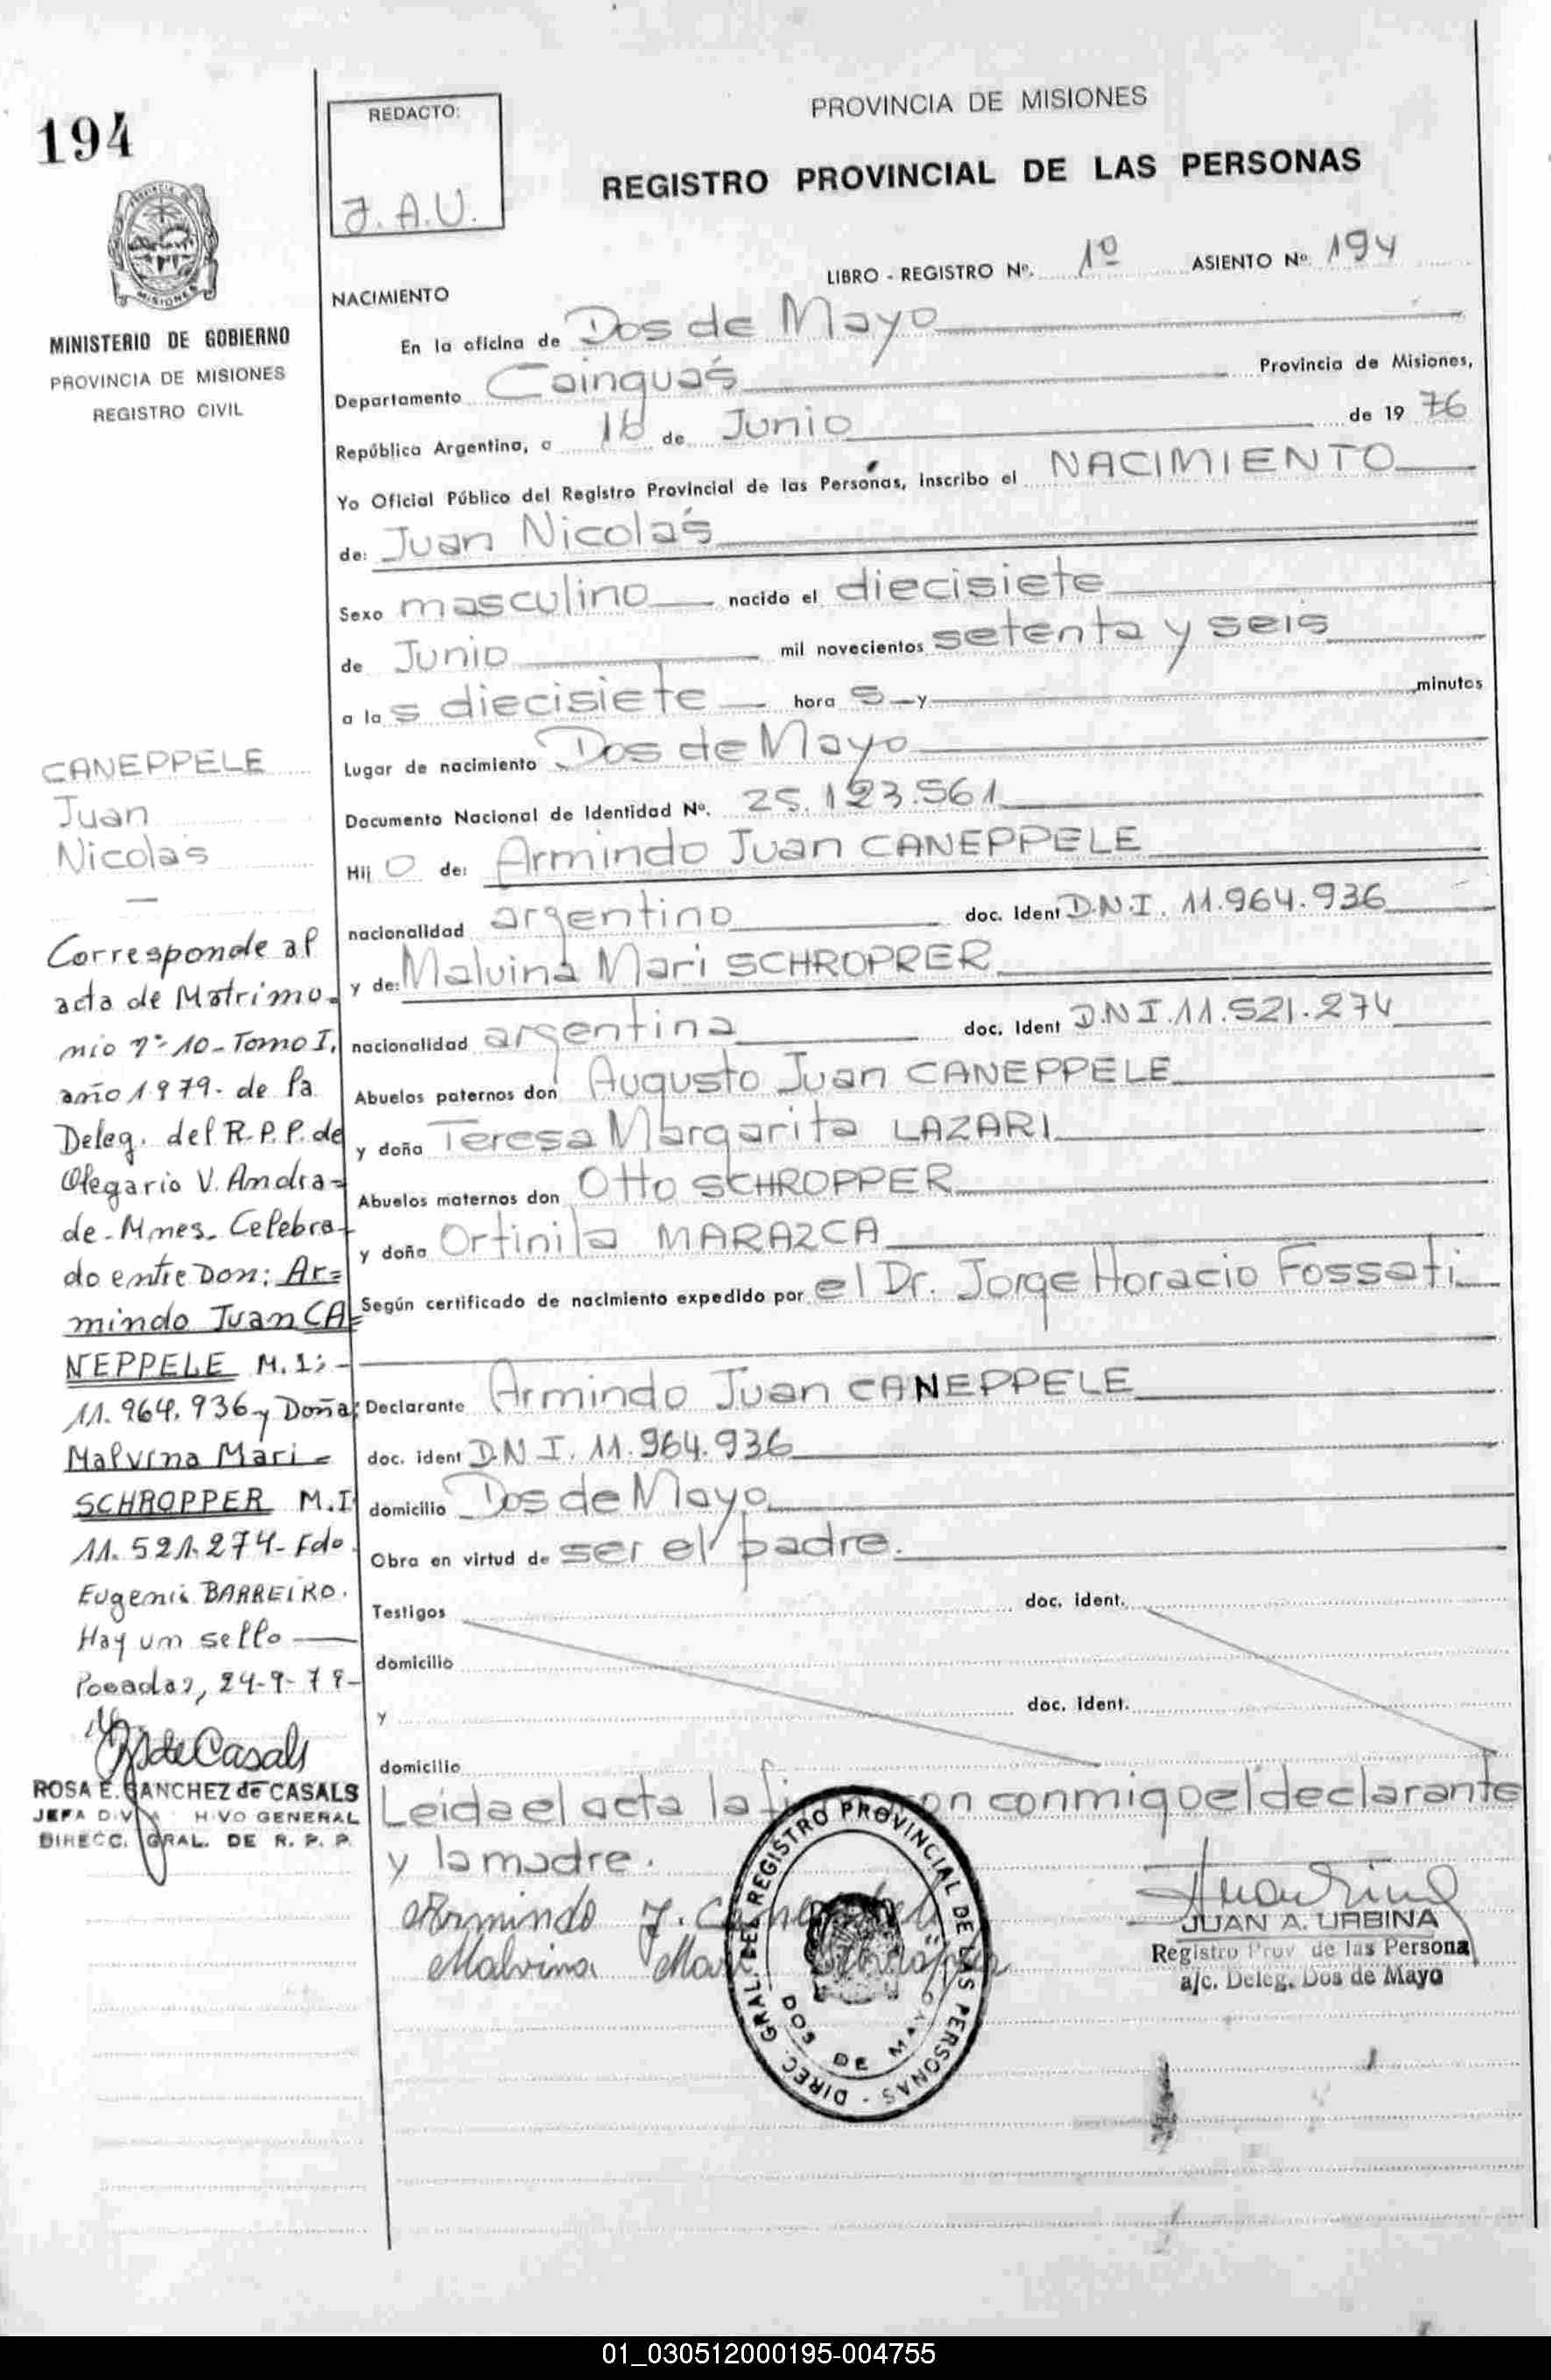 194
REDACTO:
J. A. U.
PROVINCIA DE MISIONES
REGISTRO PROVINCIAL DE LAS PERSONAS
MISIONES
MINISTERIO DE GOBIERNO
PROVINCIA DE MISIONES
REGISTRO CIVIL
LIBRO - REGISTRO Nº. 1º ASIENTO Nº 194
NACIMIENTO
En la oficina de Dos de Mayo
Departamento Cainguás Provincia de Misiones,
República Argentina, a 16 de Junio de 19 76
Yo Oficial Público del Registro Provincial de las Personas, inscribo el NACIMIENTO
de: Juan Nicolás
Sexo masculino nacido el diecisiete
de Junio mil novecientos setenta y seis
a la s diecisiete hora s y minutos
Lugar de nacimiento Dos de Mayo
Documento Nacional de Identidad Nº. 25.123.561
Hij O de: Armindo Juan CANEPPELE
nacionalidad argentino doc. Ident D.N.I. 11.964.936
y de: Malvina Mari SCHROPRER
nacionalidad argentina doc. Ident D.N.I. 11.521.274
Abuelos paternos don Augusto Juan CANEPPELE
y doña Teresa Margarita LAZARI
Abuelos maternos don Otto SCHROPPER
y doña Ortinila MARAZCA
Según certificado de nacimiento expedido por el Dr. Jorge Horacio Fossati
Declarante Armindo Juan CANEPPELE
doc. ident D.N.I. 11.964.936
domicilio Dos de Mayo
Obra en virtud de ser el padre.
Testigos doc. ident.
domicilio
y doc. ident.
domicilio
Leida el acta la on conmigo el declarante
y la madre.
Armindo J.
Malvina
DIREC. GRAL. DEL REGISTRO PROVINCIAL DE LAS PERSONAS -
DOS DE MAYO
JUAN A. URBINA
Registro Prov de las Persona
a/c. Deleg. Dos de Mayo
CANEPPELE
Juan
Nicolas
Corresponde al
acta de Matrimo-
nio nº 10 - Tomo I,
año 1979 - de la
Deleg. del R.P.P. de
Olegario V. Andra=
de - Mnes. Celebra-
do entre Don: Ar=
mindo Juan CA=
NEPPELE M.I: -
11.964.936 y Doña:
Malvina Mari -
SCHROPPER M.I
11.521.274 - Fdo.
Eugenii BARREIRO.
Hay un sello
Posadas, 24-9-79-
de Casals
ROSA E. SANCHEZ de CASALS
JEFA DIV HIVO GENERAL
DIRECC. GRAL. DE R. P. P.
01_030512000195-004755